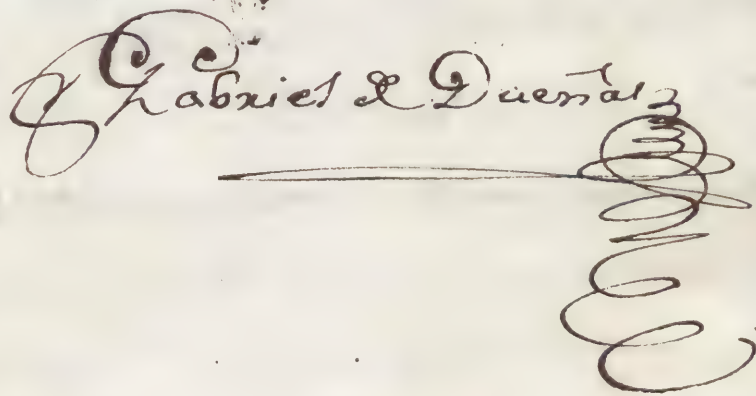 Gabriel de Dueñas